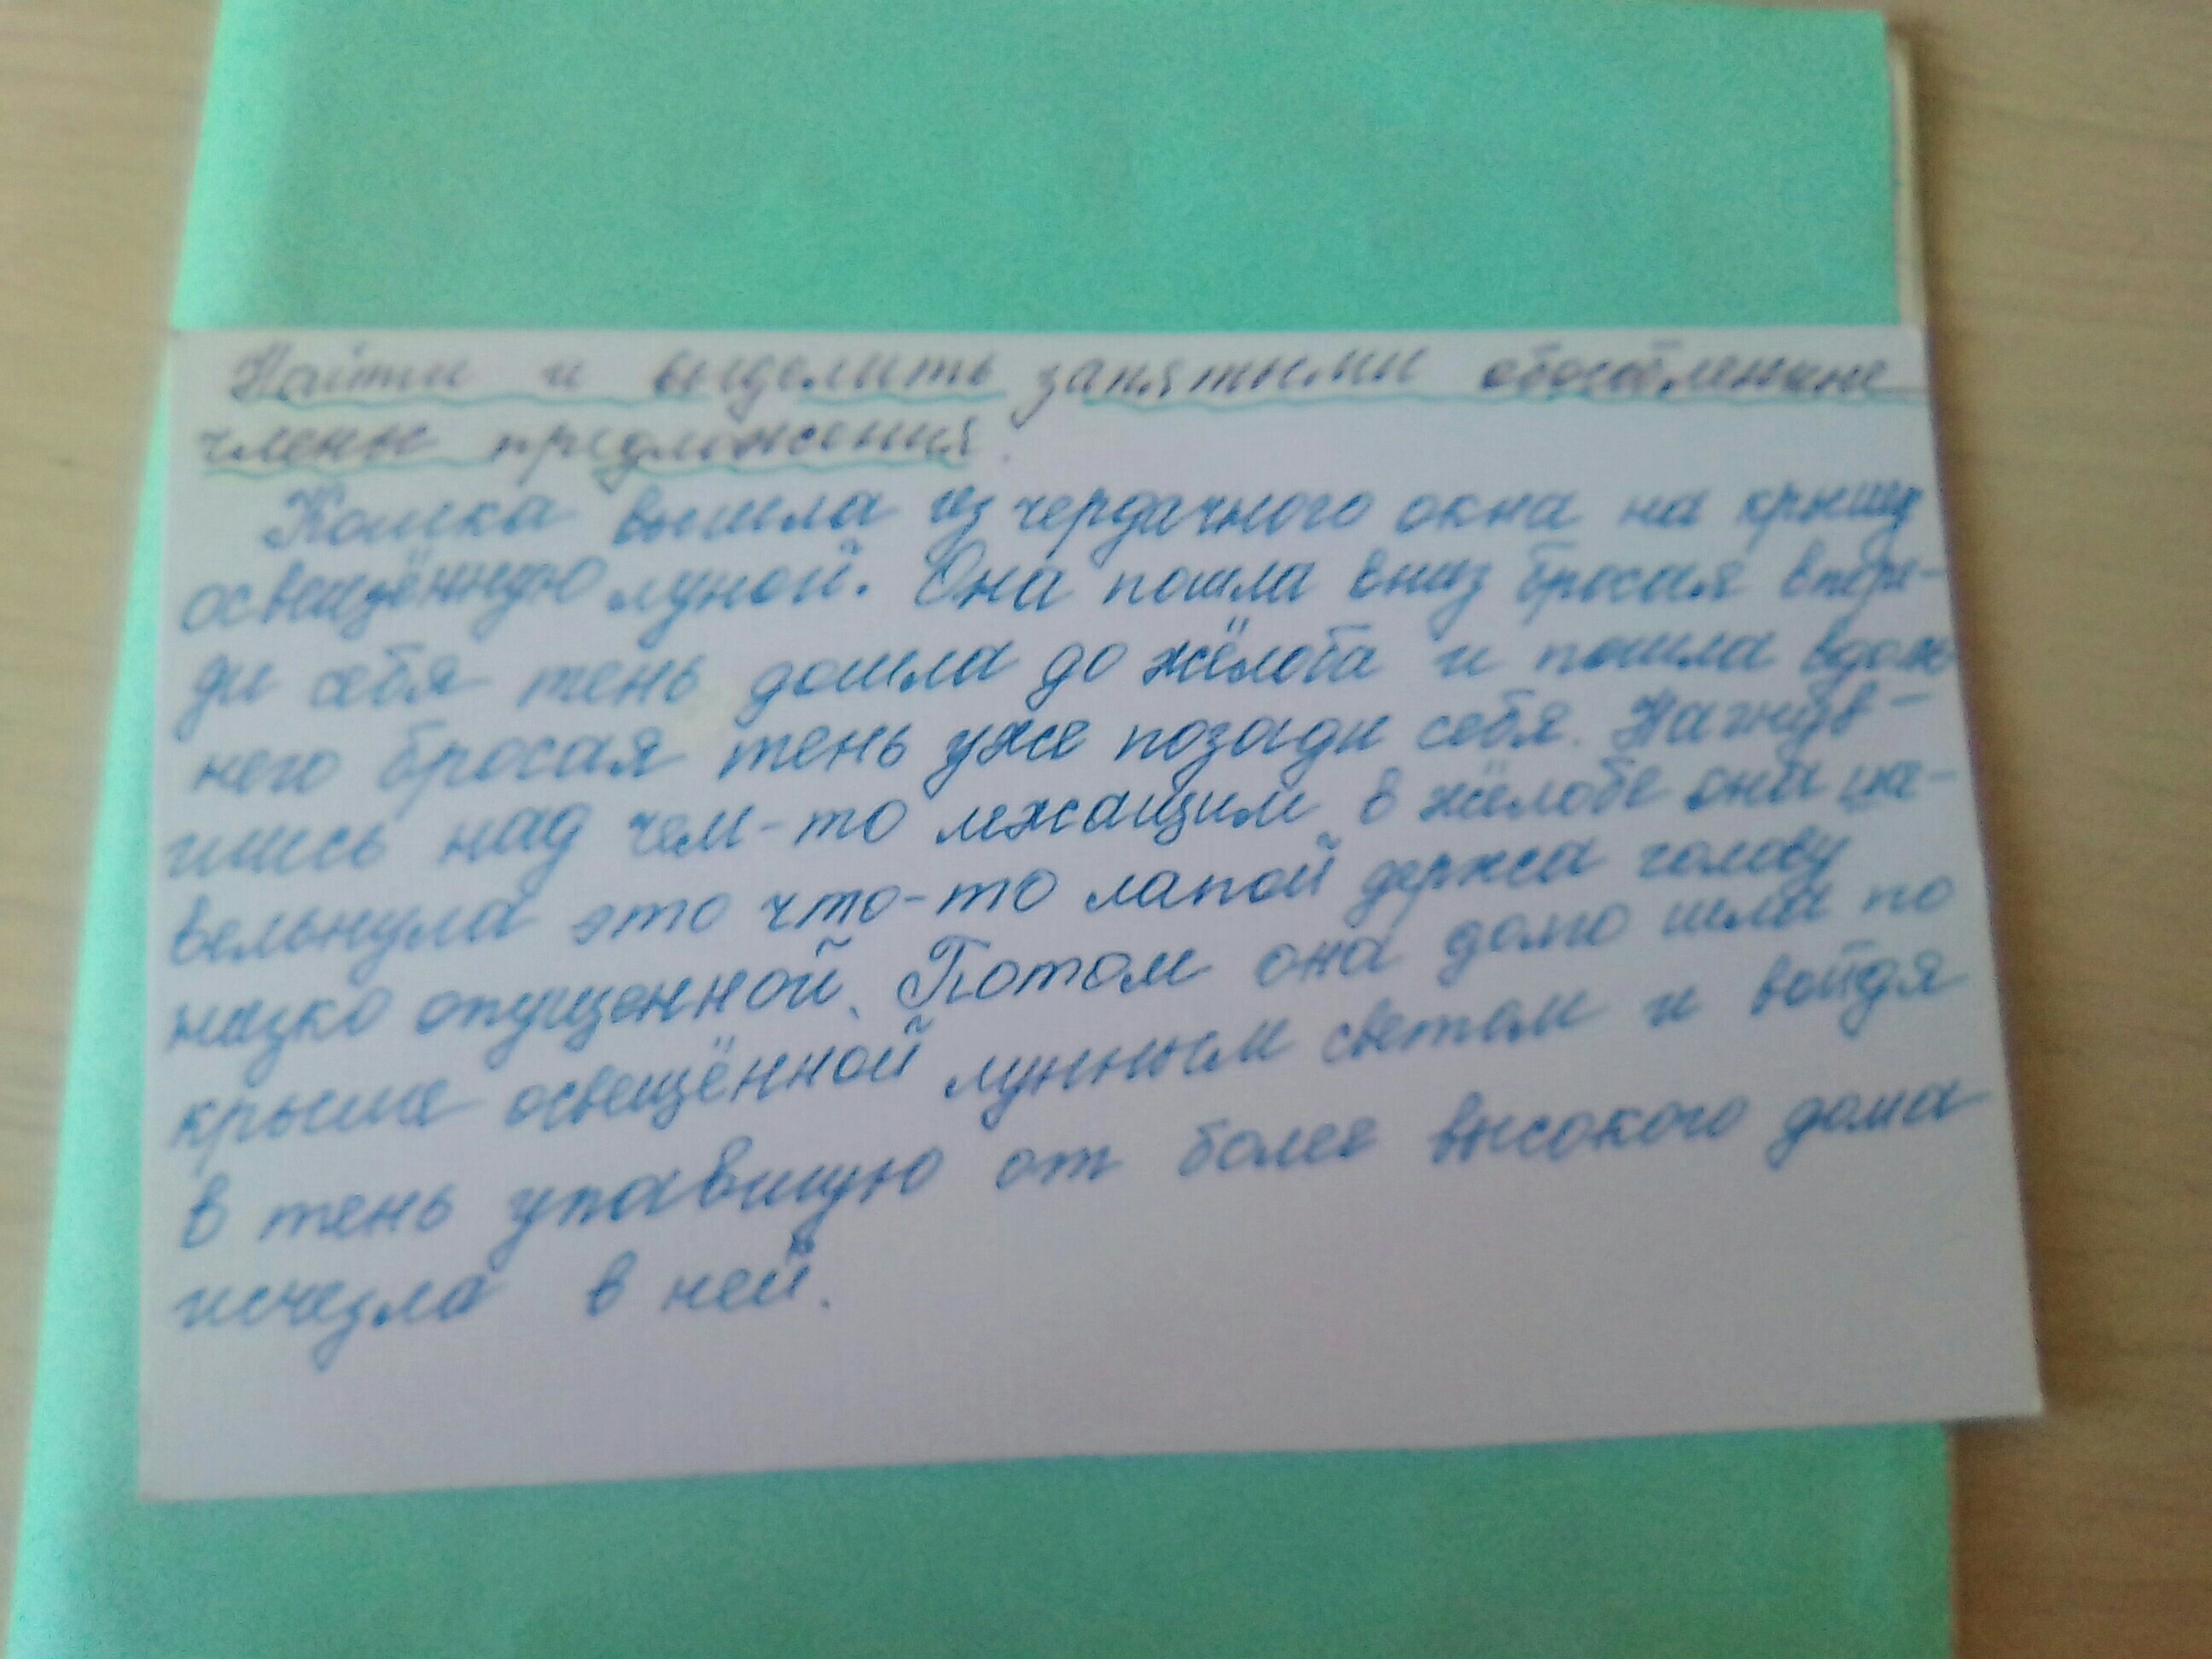 Найти и выделить запятыми обособленные
члены предложения.
Кошка вышла из чердачного окна на крышу
освещённую луной. Она пошла вниз бросая впере-
ди себя тень дошла до жёлоба и пошла вдоль
него бросая тень уже позади себя. Нагнув-
шись над чем-то лежащим в жёлобе она ше-
вельнула это что-то лапой держа голову
низко опущенной. Потом она долго шла по
крыше освещённой лунным светом и войдя
в тень упавшую от более высокого дома
исчезла в ней.